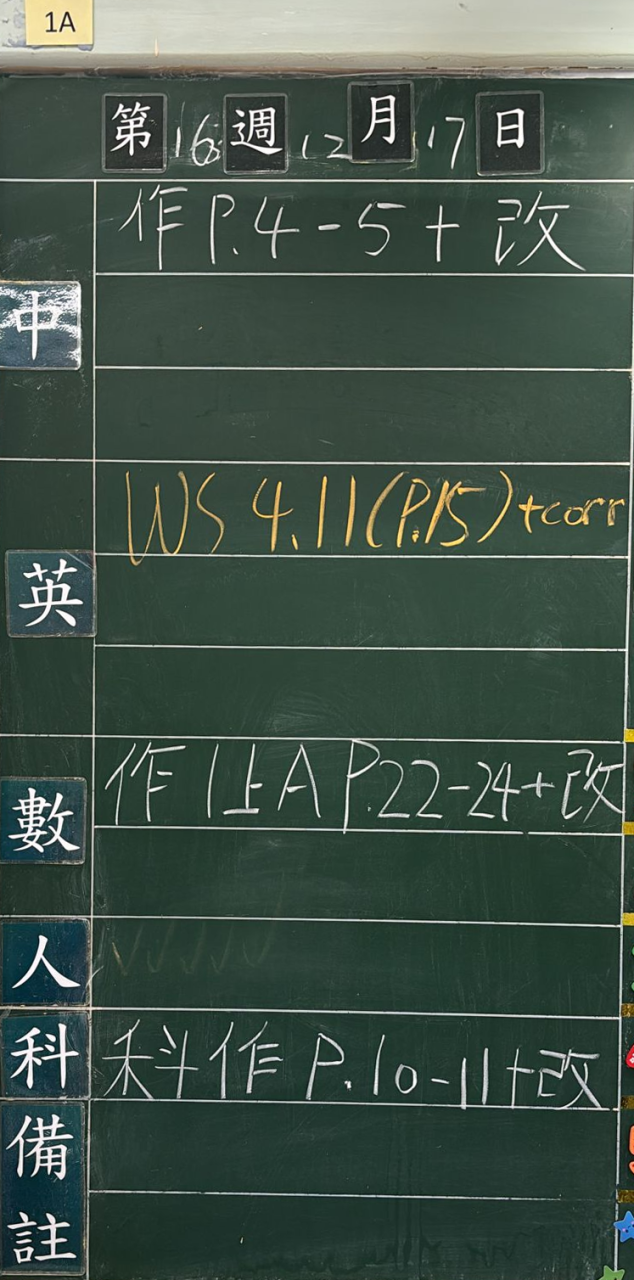 1A
第16週12月17日
作P.4-5+改
中
WS 4.11(P.15)+corr
英
作1上A P.22-24+改
數
人
科 科作P.10-11+改
備
註